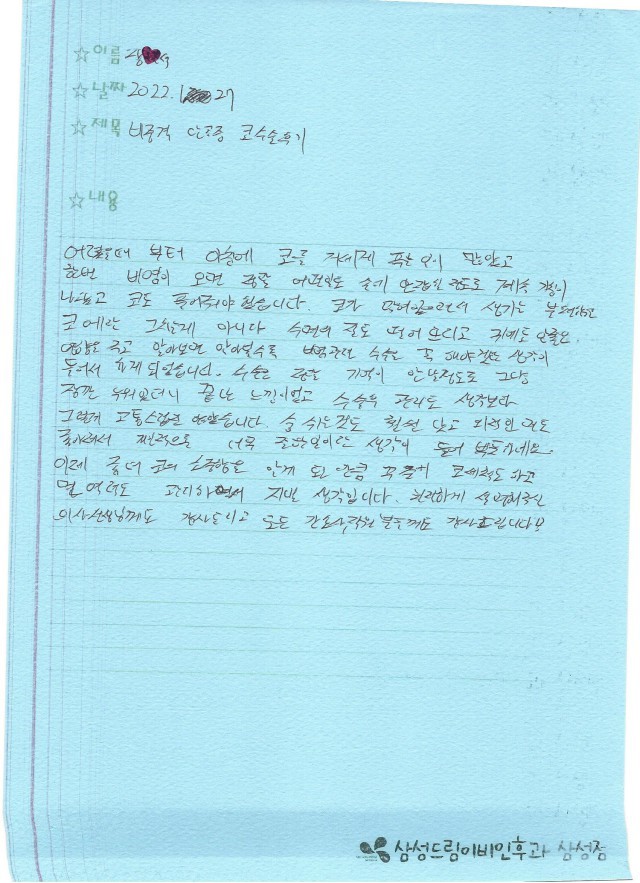 ☆이름
☆날짜 2022. 27
☆제목 비중격 만곡증 코수술후기
☆내용
어렸을때 부터 아침에 코를 거세게 푸는 일이 많았고
한번 비염이 오면 정말 어떤일도 손에 안잡힐 정도로 계속 콧물이
나오고 코도 풀어줘야 했습니다. 코가 막혀있음으로써 생기는 부작용은
코에만 그치는게 아니라 수면의 질도 떨어뜨리고 귀에도 안좋은
영향을 주고 알아보면 알아볼수록 비중격만곡 수술은 꼭 해야겠단 생각이
들어서 하게 되었습니다. 수술은 정말 기억이 안날정도로 그냥
잠깐 누워있더니 끝난 느낌이었고 수술후 관리도 생각보다
그렇게 고통스럽진 않았습니다. 숨 쉬는것도 훨씬 낫고 미적인 면도
좋아져서 전체적으로 너무 잘한일이라는 생각이 들어 뿌듯하네요.
이제 좀더 코의 소중함을 알게 된 만큼 꾸준히 코세척도 하고
면역력도 관리하면서 지낼 생각입니다. 친절하게 설명해주신
의사선생님께도 감사드리고 모든 간호사직원분들께도 감사드립니다!!
삼성드림이비인후과 삼성점